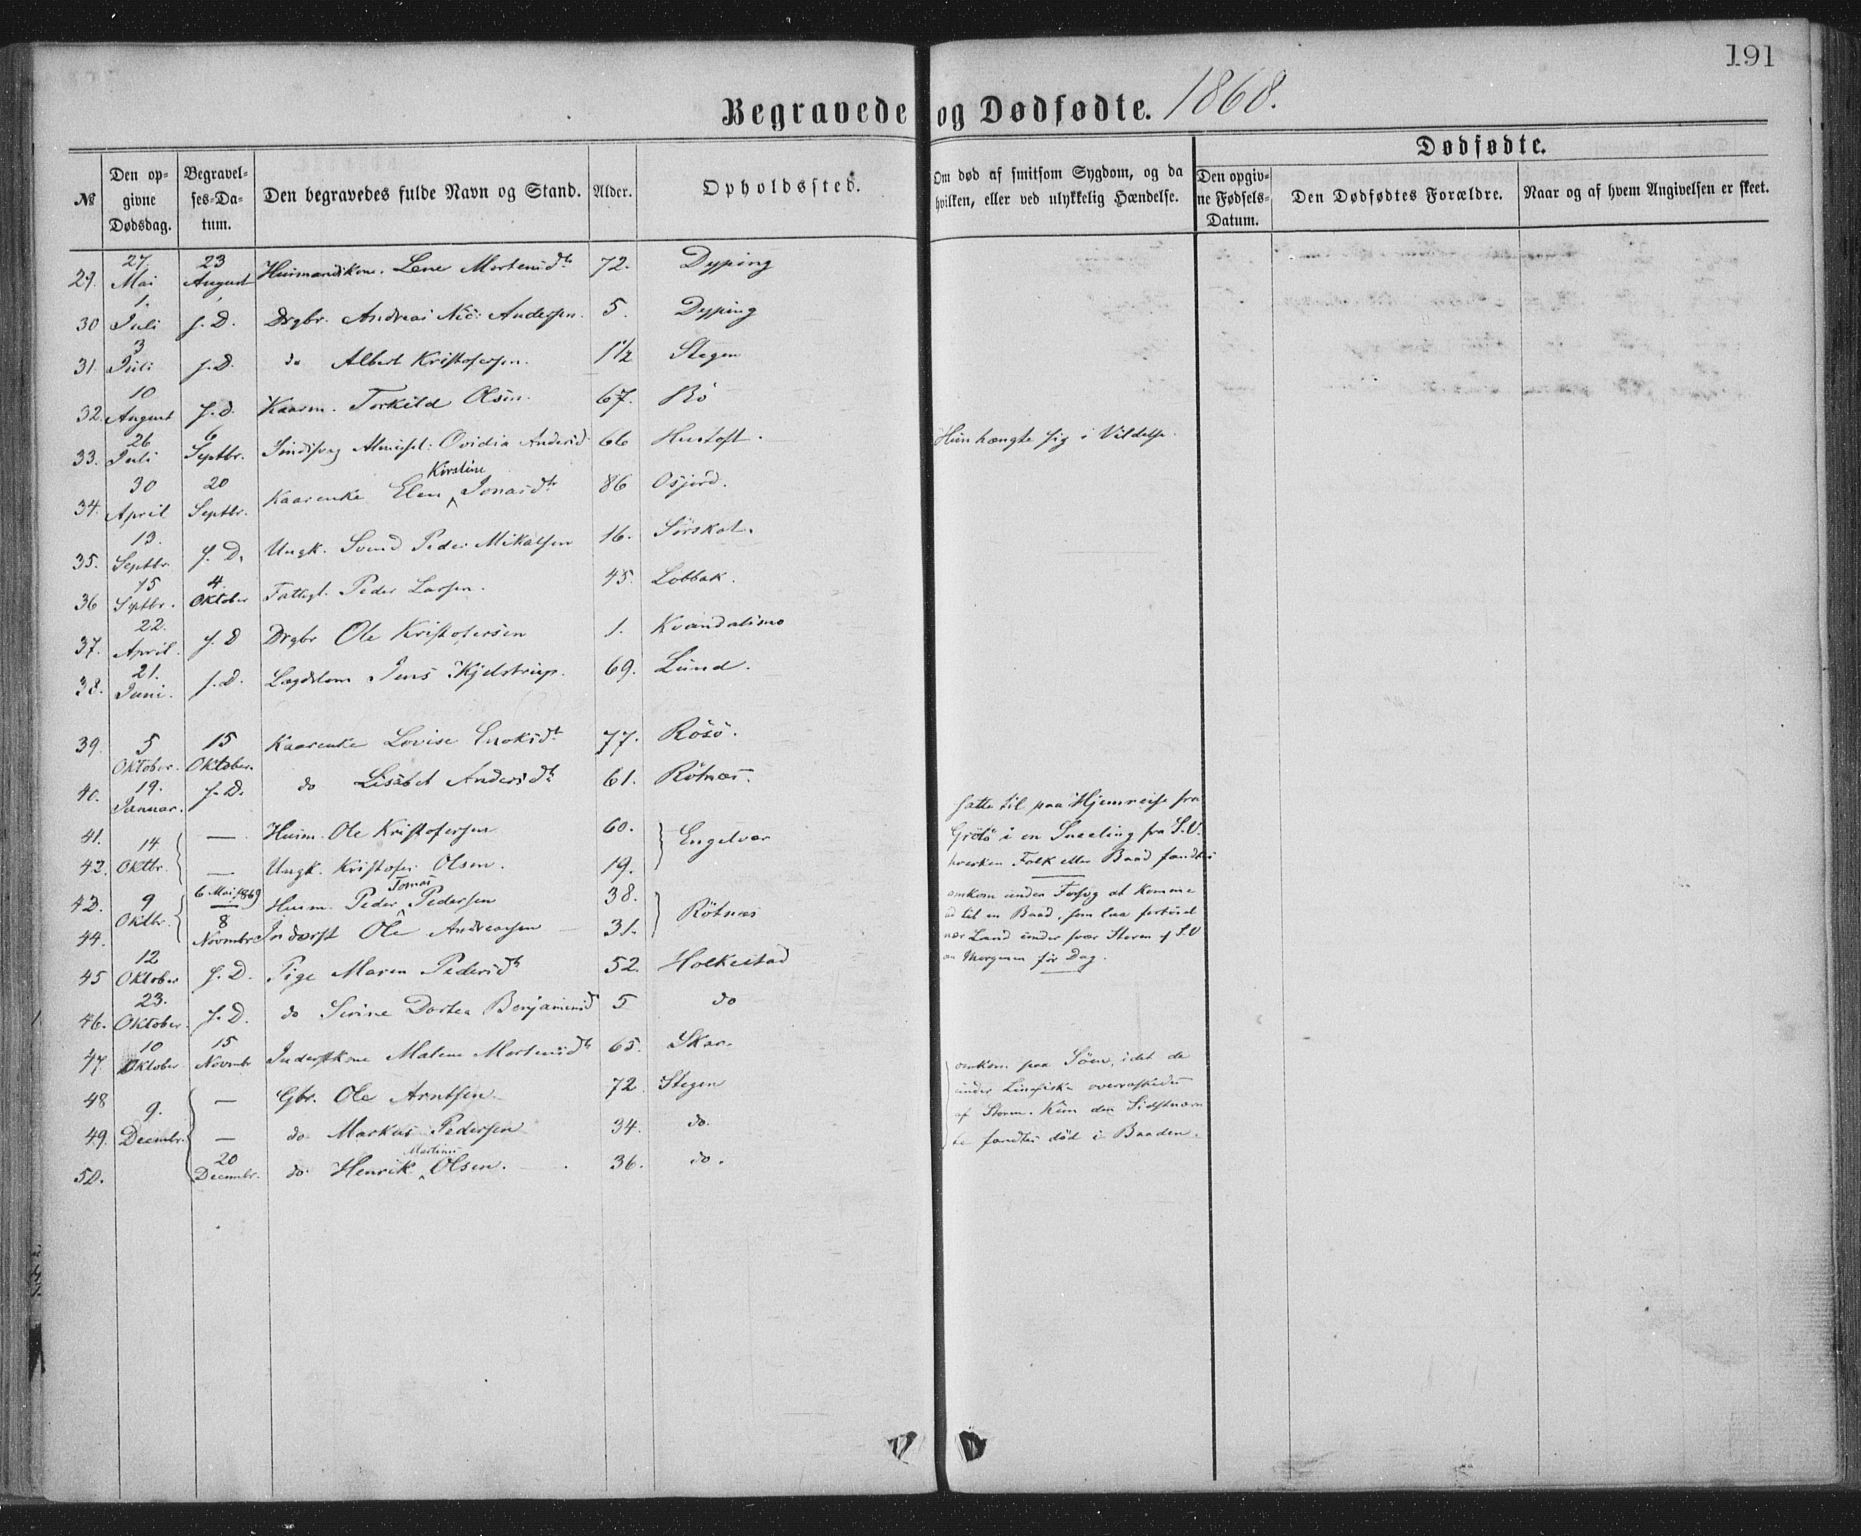 191
Begravede og Dødfødte. 1868.
№ Den opgivne Dødsdag. Begravelses-Datum. Den begravedes fulde Navn og Stand. Alder. Opholdssted. Om død af smitsom Sygdom, og da hvilken, eller ved ulykkelig Hændelse. Dødfødte. Den opgivne Fødsels-Datum. Den Dødfødtes Forældre. Naar og af hvem Angivelsen er skeet.
29. 27. Mai 23 August Huusmandskone. Lene Mortensdtr 72. Dyping
30 1. Juli s. D. Drgbr. Andreas Nic: Andersen. 5. Dyping
31. 3 Juli s. D. do Albert Kristofersen. 1½ Stegen
32. 10 August s. d. Kaarm. Torkild Olsen. 67. Bö
33. 26 Juli 6 Septbr. Almissel. Ovidia Andersd 66 Hustoft. Hun hængte sig i Vildelse.
34. 30 April 20 Septbr. Kaarenke Elen Kirstine Jonasdtr 86 Osjord.
35. 13. Septbr. s. D. Ungk. Svend Peder Mikalsen 16. Sörskot.
36 15 Septbr. 4. Oktober Fattigl. Peder Larsen. 45. Lobbak.
37. 22. April. s. D Drgbr Ole Kristofersen 1. Kvandalsmo
38. 21. Juni. s. D. Lagdslem Jens Kjelstrup. 69. Lund.
39. 5 Oktober. 15 Oktober. Kaarenke Lovise Enoksdtr 77. Rösö.
40. 19. Januar. s. D. do Lisabet Andersdtr 61. Rötnæs.
41. 14 Oktbr. — Huusm. Ole Kristofersen 60. Engelvær
42. — Ungk. Kristofer Olsen. 19.
satte til paa Hjemreise fra
Grötö i en Sneeling fra S.V.
hverken Folk eller Baad fandtes
43. 9 Oktbr. 6 Mai 1869 Huusm. Peder Tomas Pedersen 38. Rötnæs
44. 8 Novmbr. Inderst Ole Andreassen 31.
omkom under Forsög at komme
ud til en Baad, som laa fortöiet
nær Land under svær Storm af S.V
om Morgenen för Dag.
45 12 Oktober s. D. Pige Maren Pedersdtr 52. Holkestad
46. 23. Oktober. s. D. do Sirine Dortea Benjaminsd 5 do
47. 10 Oktober 15 Novmbr Inderstkone Malene Mortensdtr 65. Skar.
48 9. Decmbr. — Gbr. Ole Arntsen. 72. Stegen
49. — do. Markus Pedersen 34. do.
50. 20 Decmbr. do. Henrik Martinus Olsen. 36. do.
omkom paa Söen, idet de
under Linefiske overraskedes
af Storm. Kun den Sidstnævn
te fandtes död i Baaden.